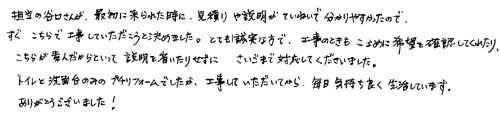 担当の谷口さんが、最初に来られた時に、見積りや説明がていねいで分かりやすかったので、
すぐこちらで工事していただこうと決めました。とても誠実な方で、工事のときもこまめに希望を確認してくれたり、
こちらが喜んだからといって説明を省いたりせずに さいごまで対応してくださいました。
トイレと洗面台のみのプチリフォームでしたが、工事していただいてから、毎日気持ち良く生活しています。
ありがとうございました！